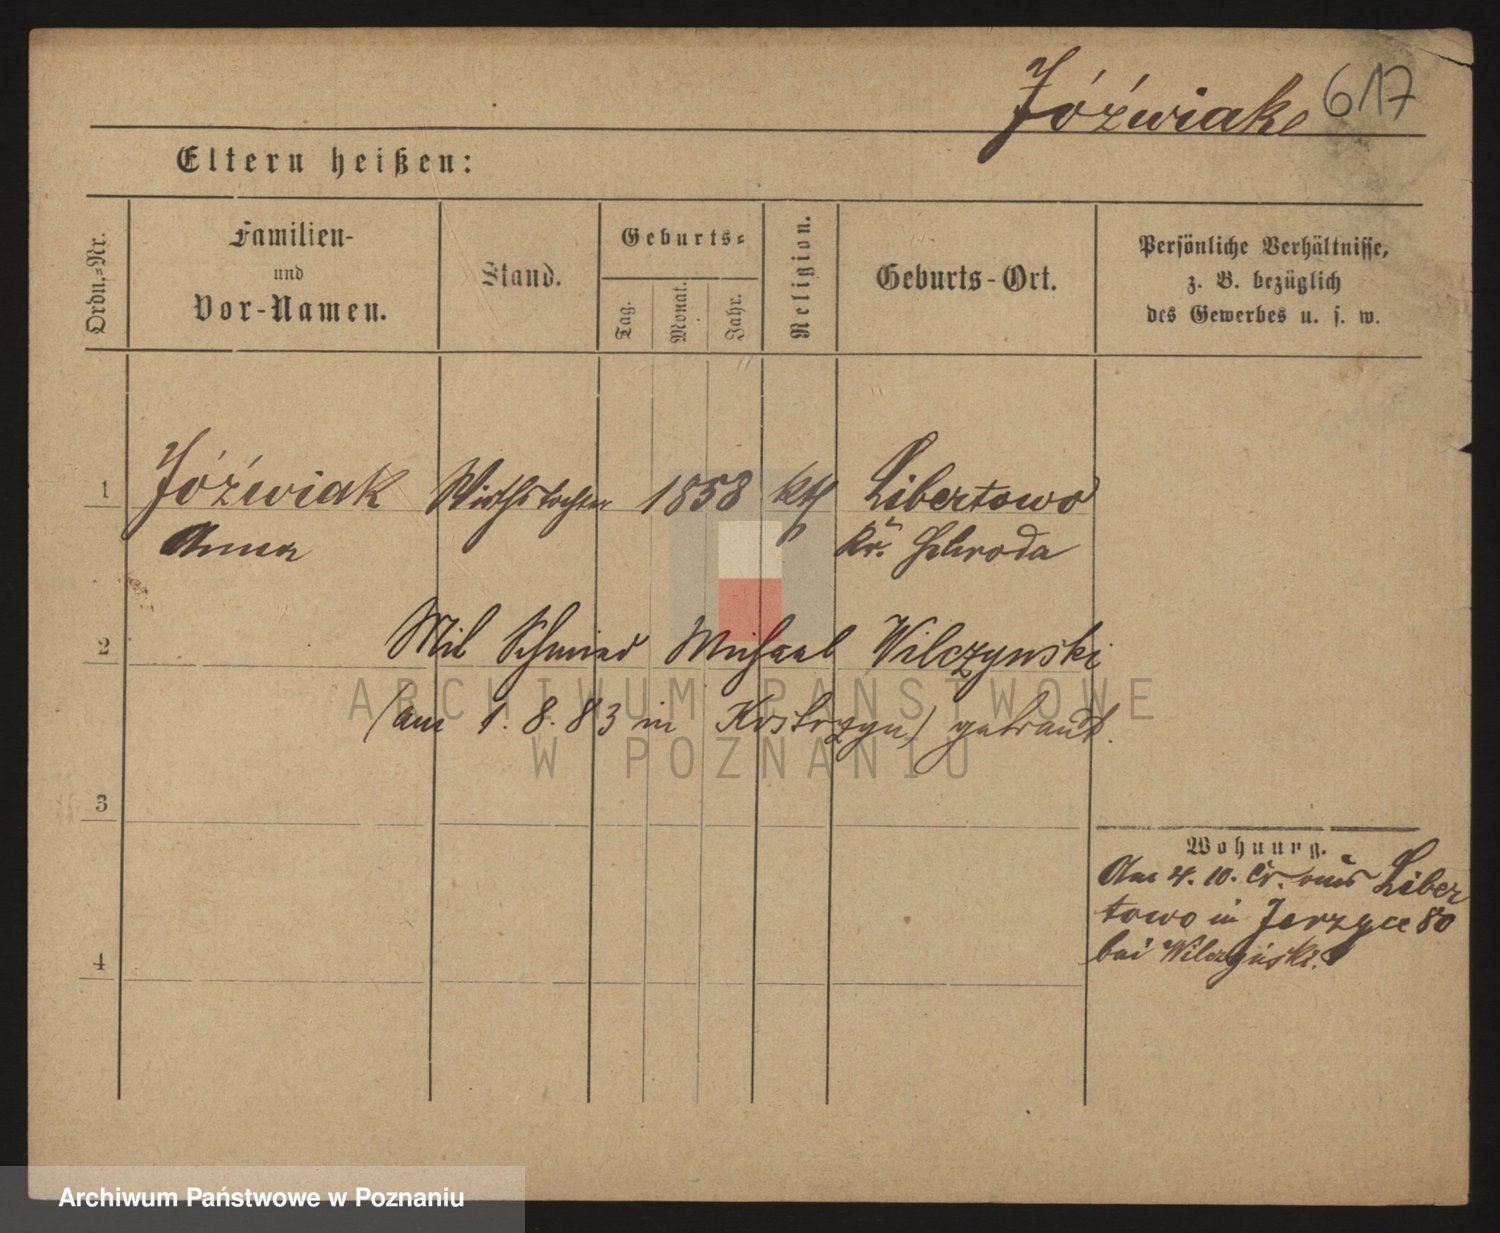 Jóźwiak 617
Eltern heißen:
Ordn.=Nr.
Familien-
und
Vor-Namen.
Stand.
Geburts=
Tag.
Monat.
Jahr.
Religion.
Geburts-Ort.
Persönliche Verhältnisse,
z. B. bezüglich
des Gewerbes u. s. w.
1 Jóźwiak Wirthstochter 1858 kth Libertowo
Anna Kr. Schroda
2 Mit Schmied Michael Wilczynski
(am 1. 8. 83 in Kostrzyn) getraut.
3
Wohnung.
Am 4. 10. Cr. aus Liber
towo in Jerzyce 80
bei Wilczyński.
4
ARCHIWUM PAŃSTWOWE
W POZNANIU
Archiwum Państwowe w Poznaniu